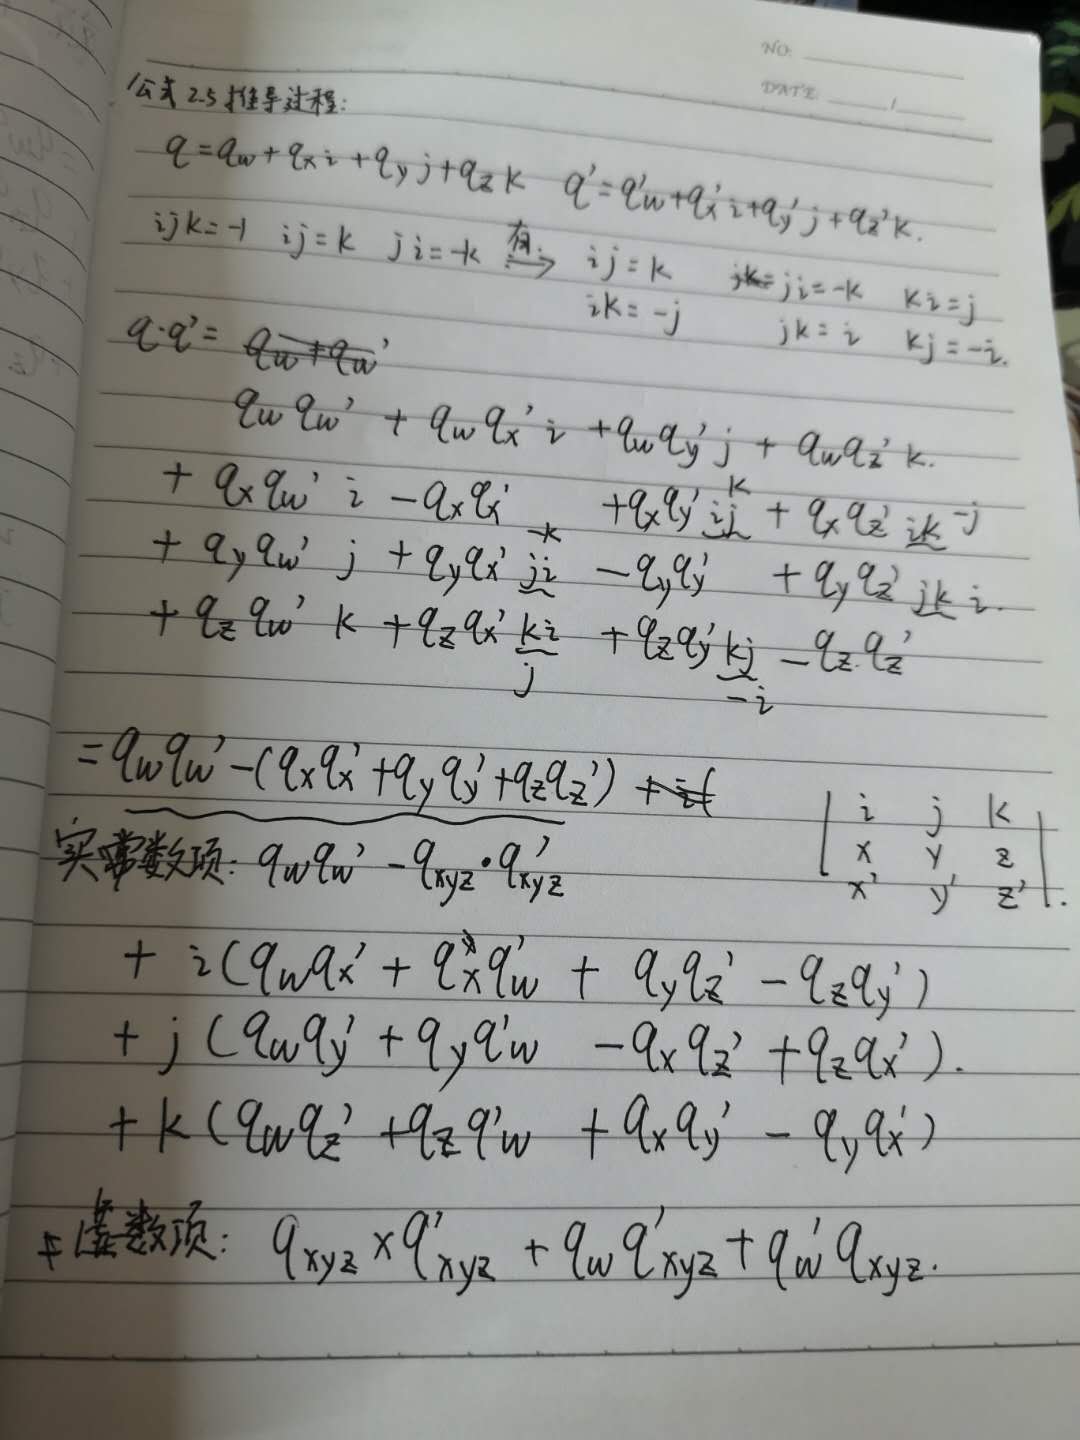 NO.
DATE /
公式2.5推导过程:
q=qw+qxi+qyj+qzk q'=q'w+qx'i+qy'j+qz'k.
ijk=-1 ij=k ji=-k 有. ⟹ ij=k ji=-k ki=j
ik=-j jk=i kj=-i.
q·q'= qw+qw'
qwqw' + qwqx'i +qwqy'j + qwqz'k.
+ qxqw'i -qxqx' +qxqy'ij k + qxqz'ik -j
+ qyqw'j + qyqx'ji -k -qyqy' + qyqz'jk i.
+ qzqw'k +qzqx'ki j +qzqy'kj -i -qz.qz'
=qwqw'-(qxqx'+qyqy'+qzqz') + i(
i j k
实常数项: qwqw'-qxyz·q'xyz
x y z
x' y' z' .
+ i(qwqx' + qxq'w + qyqz' - qzqy')
+ j(qwqy' + qyq'w -qxqz' +qzqx').
+ k(qwqz' +qzq'w +qxqy' - qyqx')
虚数项: qxyz×q'xyz +qwq'xyz+qw'qxyz.